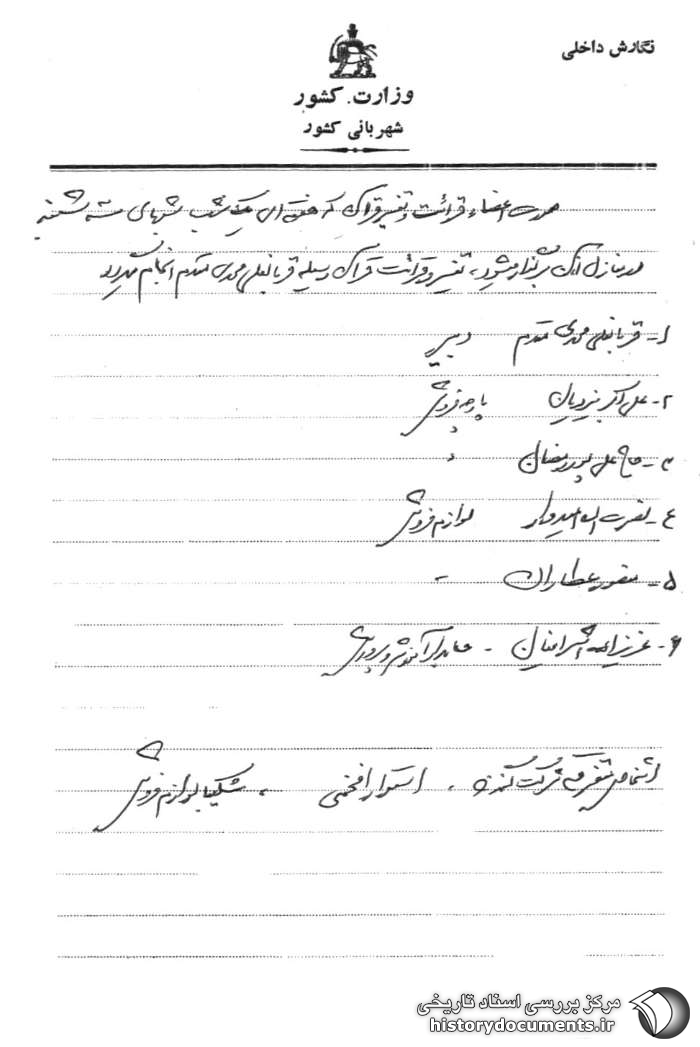 نگارش داخلی
وزارت کشور
شهربانی کشور
صورت اعضاء قرائت و تفسیر قرآن که هفته‌ای یک شب شبهای سه شنبه
در منازل آنان برگذار میشود، تفسیر و قرائت قرآن وسیله قربانعلی محمدی مقدم انجام میگردد
۱- قربانعلی محمدی مقدم دبیر
۲- علی اکبر یزدیان پارچه فروش
۳- حاج علی پور رمضان "
۴- نصرت اله امیدوار لوازم فروش
۵- منصور عطاران -
۶- عزیزاله اشراقیان - آموزش و پرورش
اشخاص متفرقه شرکت کننده . استوار افخمی ، شکیبا لوازم فروش
مرکز بررسی اسناد تاریخی
historydocuments.ir